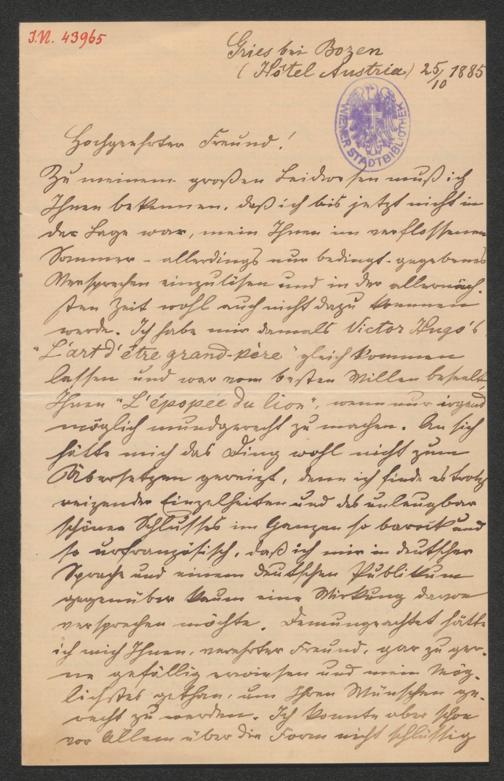 J.N. 43965
Gries bei Bozen
(Hôtel Austria) 25/10 1885
WIENER STADTBIBLIOTHEK
Hochgeehrter Freund!
Zu meinem großen Leidwesen muß ich
Ihnen bekennen, daß ich bis jetzt nicht in
der Lage war, mein Ihnen im verflossenen
Sommer – allerdings nur bedingt – gegebenes
Versprechen einzulösen und in der allernäch-
sten Zeit wohl auch nicht dazu kommen
werde. Ich habe mir damals Victor Hugo's
"L'art d'être grand-père" gleich kommen
lassen und war vom besten Willen beseelt,
Ihnen "L'épopée du lion", wenn nur irgend
möglich mundgerecht zu machen. An sich
hätte mich das Ding wohl nicht zum
Übersetzen gereizt, denn ich finde es trotz
reizender Einzelheiten und des unleugbar
schönen Schlusses im Ganzen so barock und
so urfranzösisch, daß ich mir in deutscher
Sprache und einem deutschen Publikum
gegenüber kaum eine Wirkung davon
versprechen möchte. Demungeachtet hätte
ich mich Ihnen, verehrter Freund, gar zu ger-
ne gefällig erwiesen und mein Mög-
lichstes gethan, um Ihren Wünschen ge-
recht zu werden. Ich konnte aber schon
vor Allem über die Form nicht schlüssig